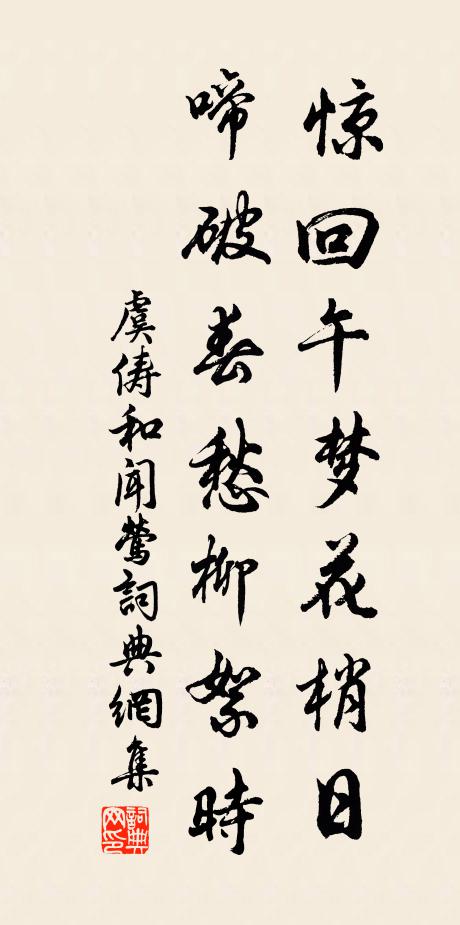 惊回午梦花梢日
啼破春愁柳絮時
虞俦和闻莺詞典網集
詞典
网印